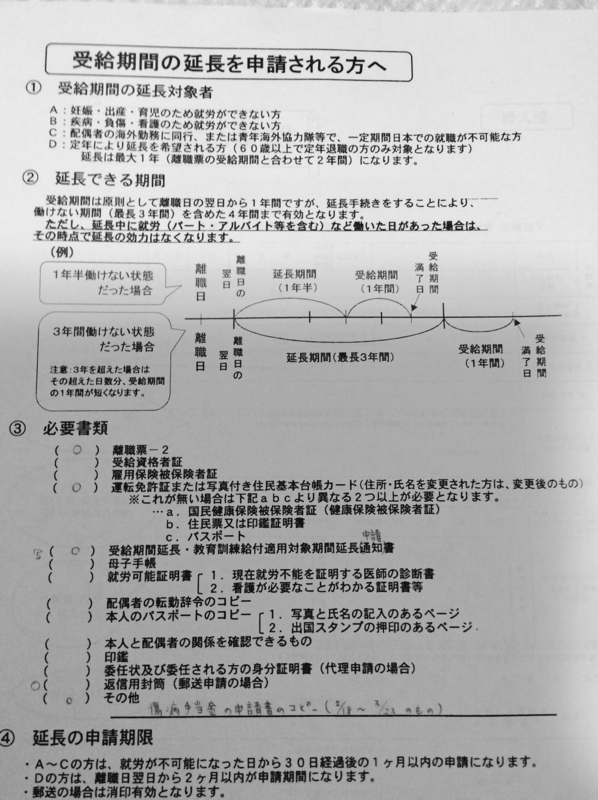 受給期間の延長を申請される方へ
① 受給期間の延長対象者
A：妊娠・出産・育児のため就労ができない方
B：疾病・負傷・看護のため就労ができない方
C：配偶者の海外勤務に同行、または青年海外協力隊等で、一定期間日本での就職が不可能な方
D：定年により延長を希望される方（６０歳以上で定年退職の方のみ対象となります）
延長は最大１年（離職票の受給期間と合わせて２年間）になります。
② 延長できる期間
受給期間は原則として離職日の翌日から１年間ですが、延長手続きをすることにより、
働けない期間（最長３年間）を含めた４年間まで有効となります。
ただし、延長中に就労（パート・アルバイト等を含む）など働いた日があった場合は、
その時点で延長の効力はなくなります。
（例）
１年半働けない状態
だった場合
離職日
離職日の
翌日
延長期間
（１年半）
受給期間
（１年間）
受給期間
満了日
３年間働けない状態
だった場合
注意：３年を超えた場合は
その超えた日数分、受給期間
の１年間が短くなります。
離職日
離職日の
翌日
延長期間（最長３年間）
受給期間
（１年間）
受給期間
満了日
③ 必要書類
（ ○ ） 離職票－２
（ ） 受給資格者証
（ ） 雇用保険被保険者証
（ ○ ） 運転免許証または写真付き住民基本台帳カード（住所・氏名を変更された方は、変更後のもの）
※これが無い場合は下記ａｂｃより異なる２つ以上が必要となります。
…ａ．国民健康保険被保険者証（健康保険被保険者証）
ｂ．住民票又は印鑑証明書
ｃ．パスポート
申請
（ ○ ） 受給期間延長・教育訓練給付適用対象期間延長通知書
（ ） 母子手帳
（ ） 就労可能証明書 １．現在就労不能を証明する医師の診断書
２．看護が必要なことがわかる証明書等
（ ） 配偶者の転勤辞令のコピー
（ ） 本人のパスポートのコピー １．写真と氏名の記入のあるページ
２．出国スタンプの押印のあるページ
（ ） 本人と配偶者の関係を確認できるもの
（ ） 印鑑
（ ） 委任状及び委任される方の身分証明書（代理申請の場合）
○（ ） 返信用封筒（郵送申請の場合）
（ ○ ） その他
傷病手当金の申請書のコピー（
のもの）
④ 延長の申請期限
・Ａ～Ｃの方は、就労が不可能になった日から３０日経過後の１ヶ月以内の申請になります。
・Ｄの方は、離職日翌日から２ヶ月以内が申請期間になります。
・郵送の場合は消印有効となります。